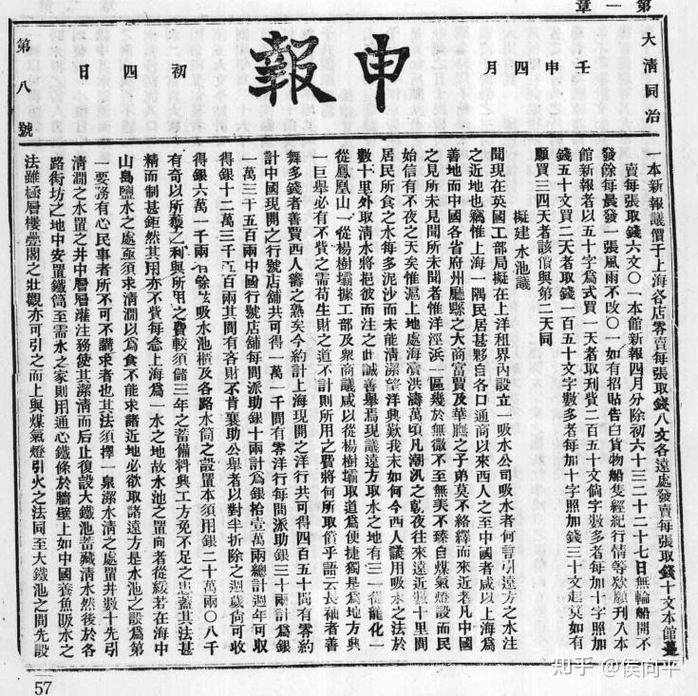 第一章
大清同治
壬申四月
申報
初四日
第八號
一本新報議價于上海各店零賣每張取錢八文各遠處發賣每張取錢十文本館躉
賣每張取錢六文○一本館新報四月分除初六十三二十二十七日無輪船開不
發餘每晨發一張風雨不改○一如有招貼告白貨物船隻經紀行情等欵願刊入本
館新報者以五十字為式買一天者取刊費二百五十文倘字數多者每加十字照加
錢五十文買二天者取錢一百五十文字數多者每加十字照加錢三十文起莫如有
願買三四天者該價與第二天同
擬建水池議
聞現在英國工部局擬在上洋租界內設立一吸水公司吸水者何言引遠方之水注
之近地也竊惟上海一隅民居甚夥自各口通商以來西人之至中國者咸以上海為
善地而中國各省府州廳縣之大商富買及華胄之子弟莫不絡繹而來近者凡中國
之見所未見聞所未聞者惟洋涇浜一區幾於無微不至無美不臻自煤氣燈設而民
始信有不夜之天矣惟滬上地處海濱洪濤萬頃凡潮汛之乾夜往來遠近數十里間
居民所食之水每多泥沙而未能清潔望洋興歎我未如何今西人議用吸水之法於
數十里外取清水將挹彼而注之此誠善舉焉現議遠方取水之地有三一從龍化一
從鳳凰山一從楊樹壩據工部及衆商議咸以從楊樹壩取道為便捷獨是為地方興
一巨舉必有不貲之需苟生財之道不計則所用之費將何所取償乎語云長袖者善
舞多錢者善賈西人籌之熟矣今約計上海現開之洋行共可得四百五十間有零約
計中國現開之行號店舖共可得一萬一千間有零洋行每間派助銀三十兩計為銀
一萬三千五百兩中國行號店舖每間派助銀十兩計為銀拾壹萬兩總計週年可取
得銀十二萬三千五百兩其間有吝財不肯襄助公舉者以對半折除之週歲尚可收
得銀六萬一千兩有餘吸水池櫃及各路水筒之設置本須用銀二十萬兩○八千
有奇以所獲之利與所用之費較須儲三年之蓄備料興工方免不足之患蓋其法甚
精而制甚鉅然其用亦不貲每念上海為一水之地故水池之置尚者從緩若在海中
山島鹽水之處亟須求清澗以為食不能求諸近地必欲取諸遠方是水池之設為第
一要務有心民事者所不可不講求者也其法須擇一泉潔水清之處置井數十先引
清澗之水灌於之井中層層灌注務使其潔清而后止復設大鐵池蓄藏清水然後於各
路街坊之地中安置鐵筒至需水之家則用通心鐵條於牆壁上如中國養魚吸水之
法雖極層樓疊閣之壯觀亦可引之而上與煤氣燈引火之法同至大鐵池之間先設
57
知乎 @侯向平